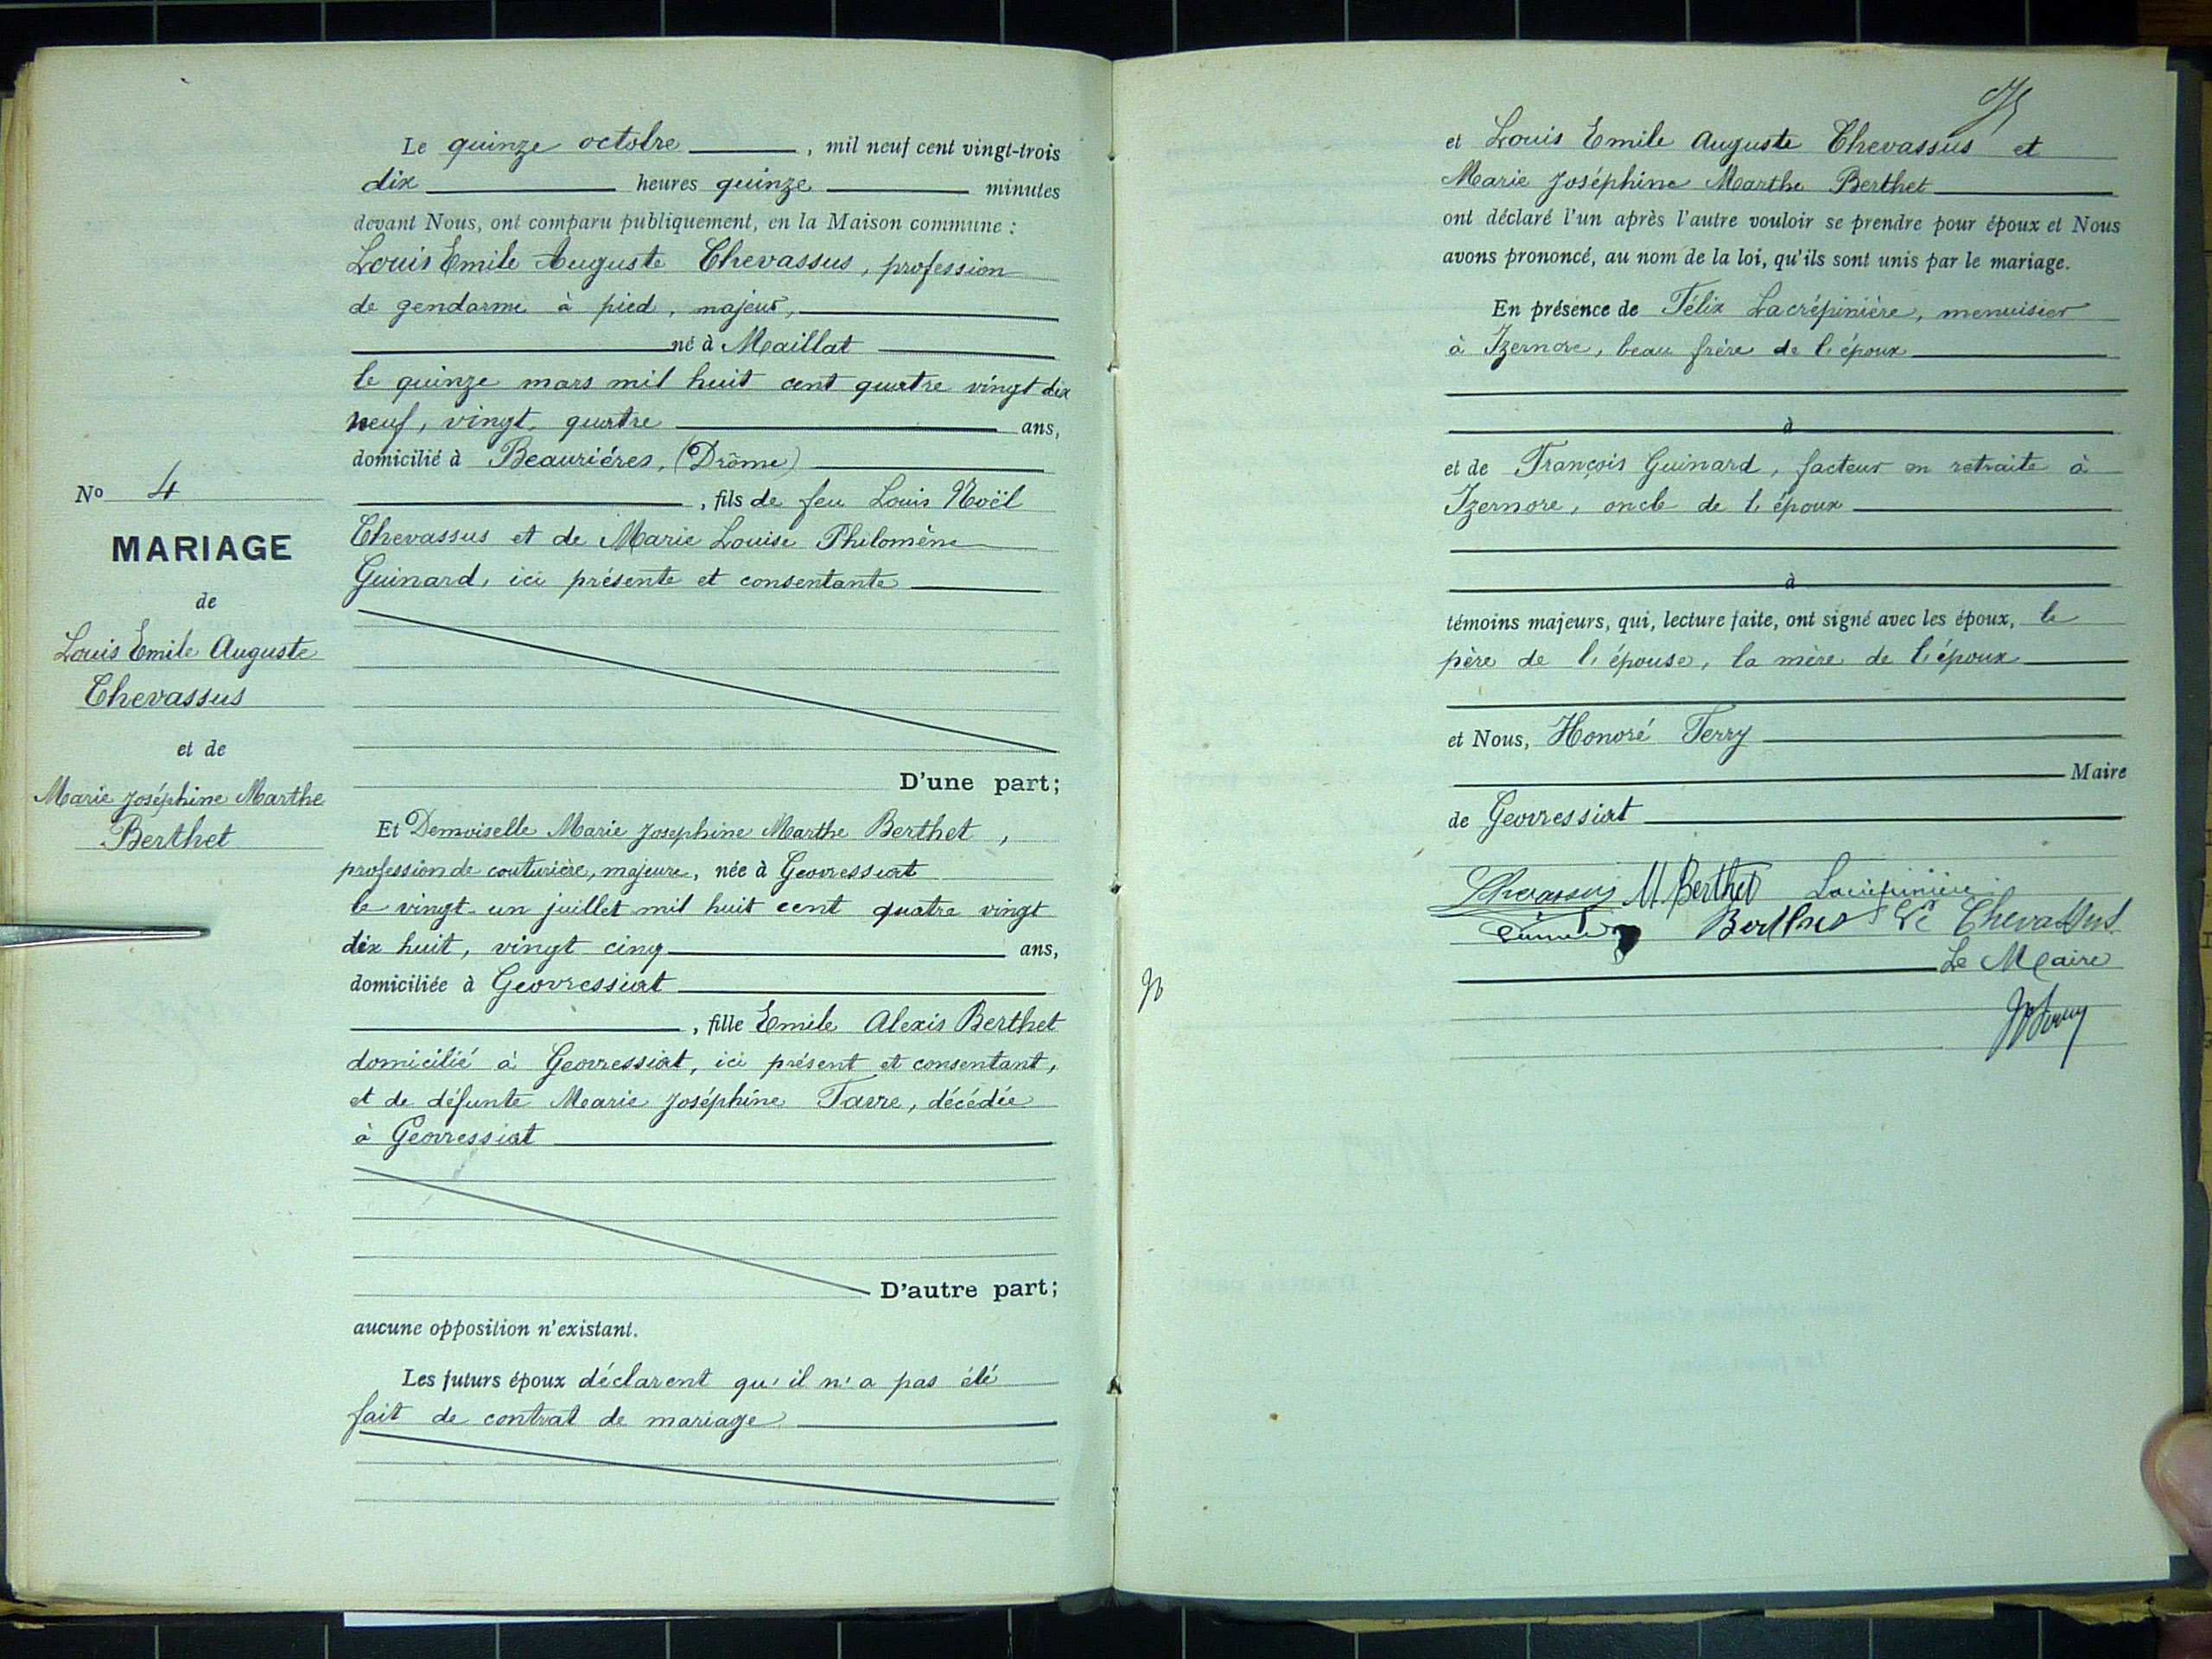 N° 4
MARIAGE
de
Louis Emile Auguste
Chevassus
et de
Marie Joséphine Marthe
Berthet
Le quinze octobre, mil neuf cent vingt-trois
dix heures quinze minutes
devant Nous, ont comparu publiquement, en la Maison commune :
Louis Emile Auguste Chevassus, profession
de gendarme à pied, majeur,
né à Maillat
le quinze mars mil huit cent quatre vingt dix
neuf, vingt quatre ans,
domicilié à Beaurières, (Drôme)
, fils de feu Louis Noël
Chevassus et de Marie Louise Philomène
Guinard, ici présente et consentante
D'une part;
Et Demoiselle Marie Josephine Marthe Berthet,
profession de couturière, majeure, née à Geovressiat
le vingt-un juillet mil huit cent quatre vingt
dix huit, vingt cinq ans,
domiciliée à Geovressiat
, fille Emile Alexis Berthet
domicilié à Geovressiat, ici présent et consentant,
et de défunte Marie Joséphine Favre, décédée
à Geovressiat
D'autre part;
aucune opposition n'existant.
Les futurs époux déclarent qu'il n'a pas été
fait de contrat de mariage
et Louis Emile Auguste Chevassus et
Marie Joséphine Marthe Berthet
ont déclaré l'un après l'autre vouloir se prendre pour époux et Nous
avons prononcé, au nom de la loi, qu'ils sont unis par le mariage.
En présence de Félix Lacrépinière, menuisier
à Izernore, beau frère de l'époux
à
et de François Guinard, facteur en retraite à
Izernore, oncle de l'époux
à
témoins majeurs, qui, lecture faite, ont signé avec les époux, le
père de l'épouse, la mère de l'époux
et Nous, Honoré Ferry
Maire
de Geovressiat
Chevassus M Berthet Lacrépinière
Berthet Ve Chevassus
Le Maire